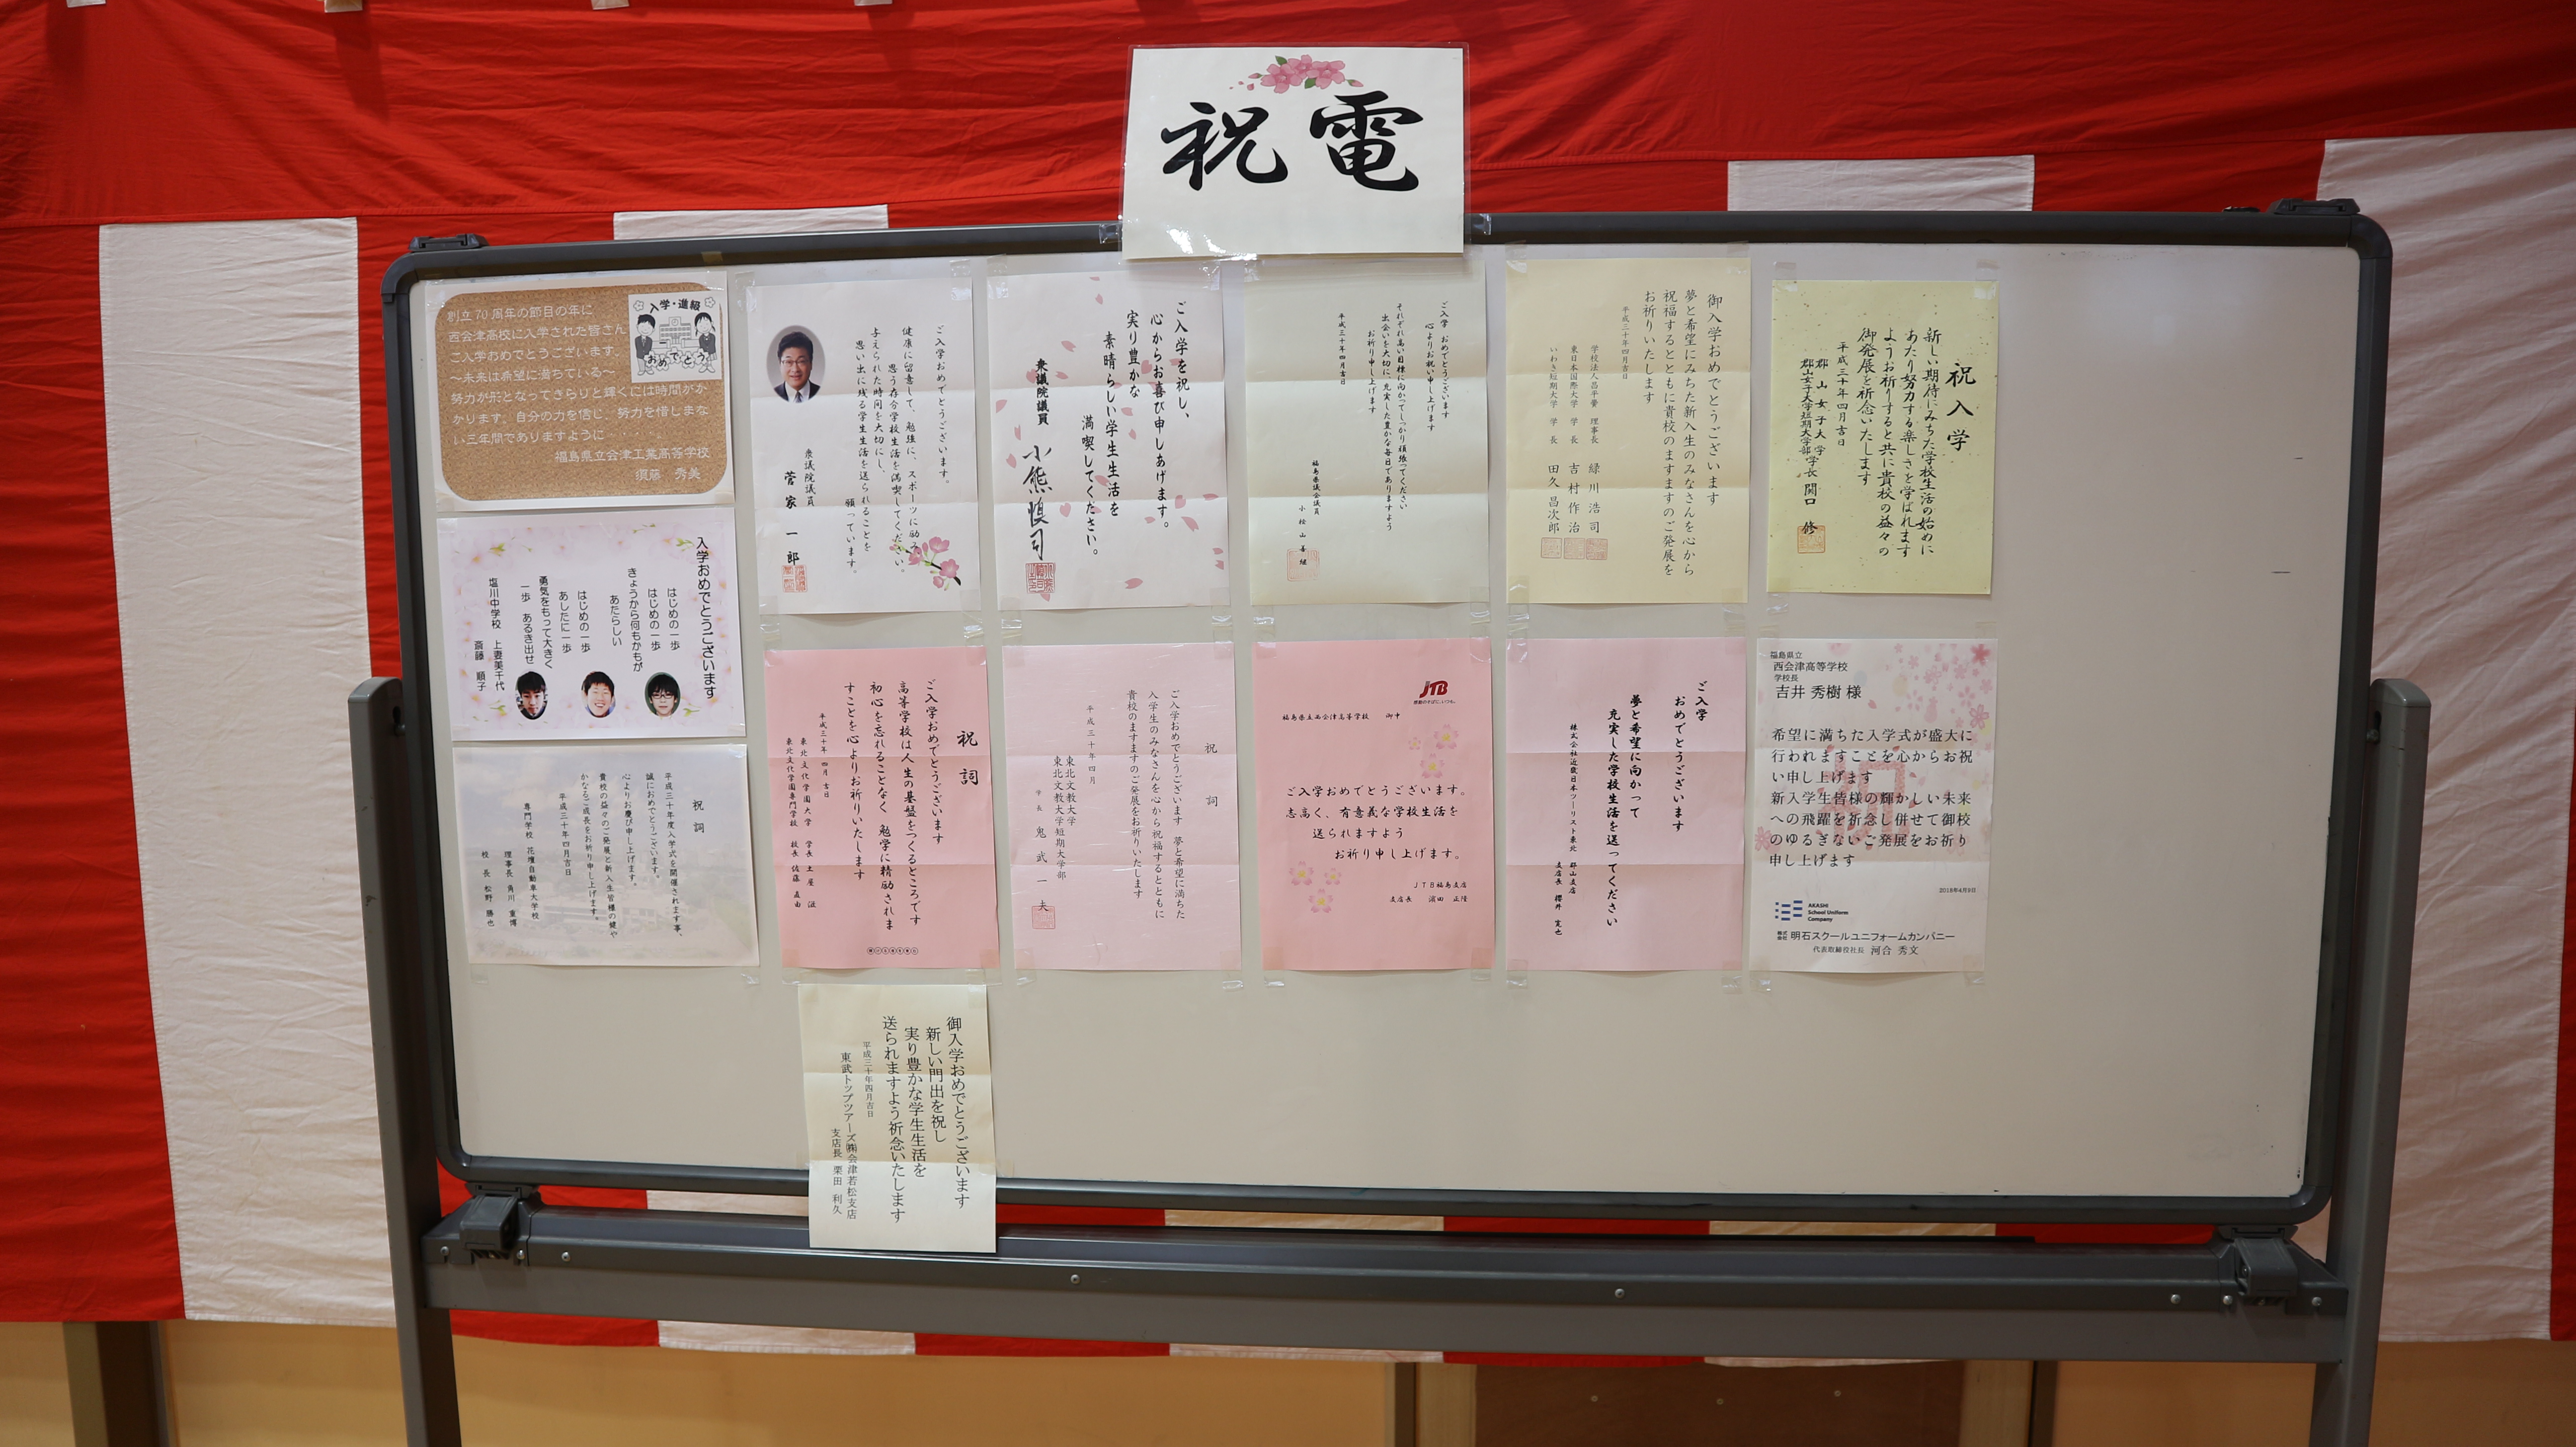 祝電
創立70周年の節目の年に
西会津高校に入学された皆さん
ご入学おめでとうございます。
～未来は希望に満ちている～
努力が形となってきらりと輝くには時間がか
かります。自分の力を信じ、努力を惜しまな
い三年間でありますように
福島県立会津工業高等学校
須藤 秀美
入学・進級
おめでとう
入学おめでとうございます
はじめの一歩
はじめの一歩
きょうから何もかもが
あたらしい
はじめの一歩
あしたに一歩
勇気をもって大きく
一歩 あるき出せ
塩川中学校 上妻美千代
斎藤 順子
祝詞
平成三十年度入学式を開催されます事、
誠におめでとうございます。
心よりお慶び申し上げます。
貴校の益々のご発展と新入生皆様の健や
かなるご成長をお祈り申し上げます。
平成三十年四月吉日
専門学校 花壇自動車大学校
理事長 角川 重博
校長 松野 勝也
ご入学おめでとうございます。
健康に留意して、勉強に、スポーツに励み、
思う存分学校生活を満喫してください。
与えられた時間を大切にし、
思い出に残る学生生活を送られることを
願っています。
衆議院議員
菅家一郎
ご入学を祝し、
心からお喜び申しあげます。
実り豊かな
素晴らしい学生生活を
満喫してください。
衆議院議員 小熊慎司
ご入学 おめでとうございます
心よりお祝い申し上げます
それぞれ高い目標に向かってしっかり頑張ってください
出会いを大切に、充実した豊かな毎日でありますよう
お祈り申し上げます
平成三十年四月吉日
福島県議会議員
小桧山善継
御入学おめでとうございます
夢と希望にみちた新入生のみなさんを心から
祝福するとともに貴校のますますのご発展を
お祈りいたします
平成三十年四月吉日
学校法人昌平黌 理事長 緑川浩司
東日本国際大学 学長 吉村作治
いわき短期大学 学長 田久昌次郎
祝入学
新しい期待にみちた学校生活の始めに
あたり努力する楽しさを学ばれます
ようお祈りすると共に貴校の益々の
御発展を祈念いたします
平成三十年四月吉日
郡山女子大学
郡山女子大学短期大学部 学長 関口 修
祝詞
ご入学おめでとうございます
高等学校は人生の基盤をつくるところです
初心を忘れることなく 勉学に精励されま
すことを心よりお祈りいたします
平成三十年 四月吉日
東北文化学園大学 学長 土屋 滋
東北文化学園専門学校 校長 佐藤 直由
祝詞
ご入学おめでとうございます 夢と希望に満ちた
入学生のみなさんを心から祝福するとともに
貴校のますますのご発展をお祈りいたします
平成三十年四月
東北文教大学
東北文教大学短期大学部
学長 鬼武一夫
JTB
感動のそばに、いつも。
福島県立西会津高等学校 御中
ご入学おめでとうございます。
志高く、有意義な学校生活を
送られますよう
お祈り申し上げます。
JTB福島支店
支店長 濱田 正隆
ご入学
おめでとうございます
夢と希望に向かって
充実した学校生活を送ってください
株式会社近畿日本ツーリスト東北 郡山支店
支店長 櫻井 寛也
福島県立
西会津高等学校
学校長
吉井 秀樹 様
希望に満ちた入学式が盛大に
行われますことを心からお祝
い申し上げます
新入学生皆様の輝かしい未来
への飛躍を祈念し併せて御校
のゆるぎないご発展をお祈り
申し上げます
2018年4月9日
AKASHI
School Uniform
Company
株式会社 明石スクールユニフォームカンパニー
代表取締役社長 河合 秀文
御入学おめでとうございます
新しい門出を祝し
実り豊かな学生生活を
送られますよう祈念いたします
平成三十年四月吉日
東武トップツアーズ㈱会津若松支店
支店長 栗田 利久